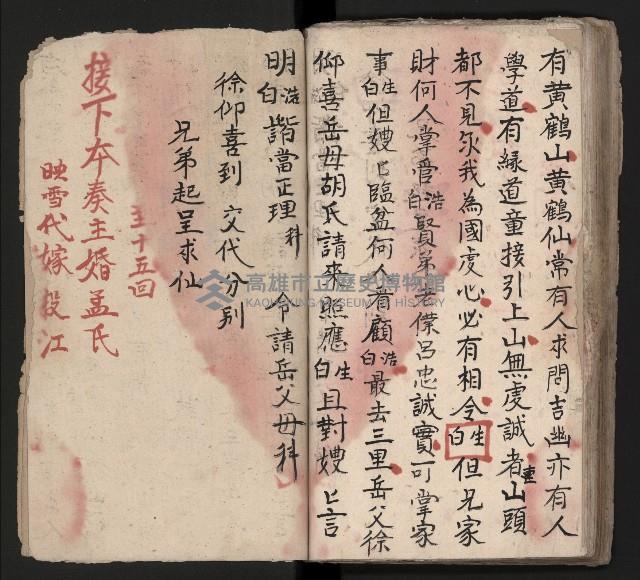 有黄鶴山黄鶴仙常有人求問吉凶亦有人
學道有緣道童接引上山無虔誠者連山頭
都不見尔我為國虔心必有相令生白但兄家
財何人掌管浩白賢弟老僕呂忠誠實可掌家
事生白但嫂々臨盆何人肴顧浩白最去三里岳父徐
仰喜岳母胡氏請來照應生白且對嫂々言
明浩白諧當正理科 令請岳父母科
徐仰喜到 交代分别
兄弟起呈求仙
至十五回
接下本奏主婚孟氏
映雪代嫁投江
高雄市立歷史博物館
KAOHSIUNG MUSEUM OF HISTORY